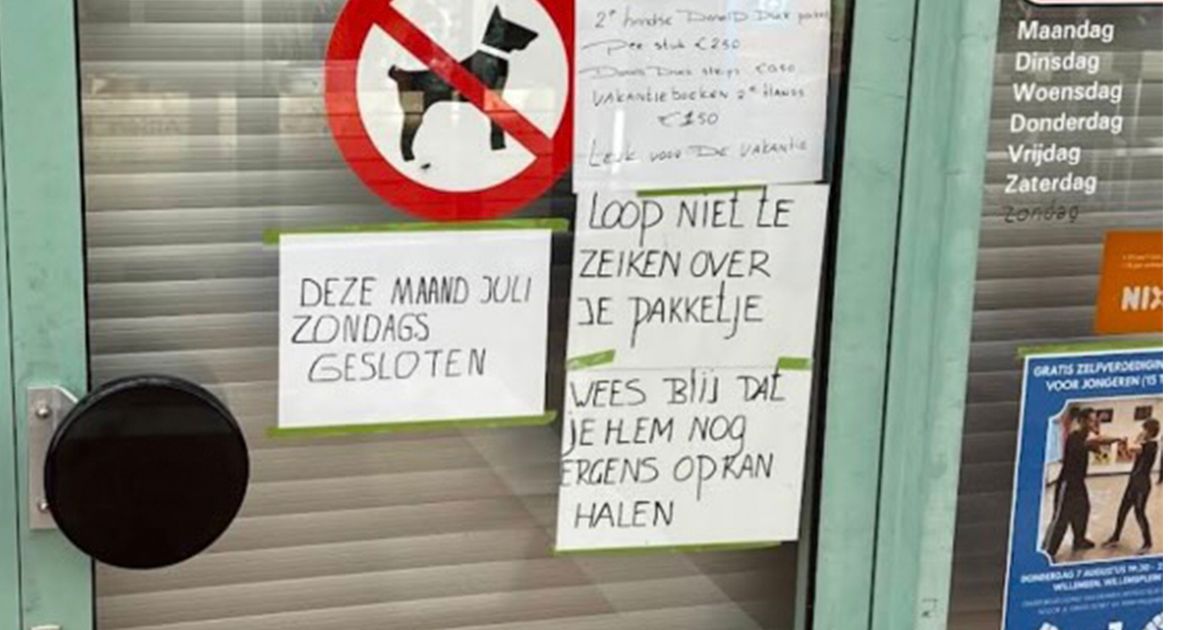 2e handse Donald Duck
Per stuk €250
Donald Duck strips
VAKANTIEBOEKEN 2e HANDS
€150
Leuk voor De VAKANTIE
LOOP NIET TE
ZEIKEN OVER
JE PAKKETJE
WEES BLIJ DAT
JE HEM NOG
ERGENS OP KAN
HALEN
DEZE MAAND JULI
ZONDAGS
GESLOTEN
Maandag
Dinsdag
Woensdag
Donderdag
Vrijdag
Zaterdag
Zondag
NIX
GRATIS ZELFVERDEDIGIN
VOOR JONGEREN (15 T
DONDERDAG 7 AUGUSTUS 19:30 - 2
WILLEMEEN, WILLEMSPLEIN